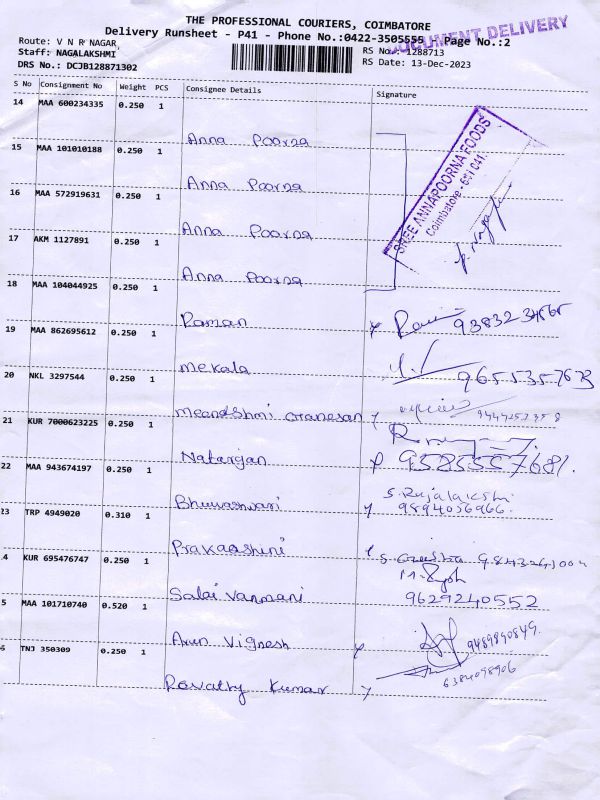 THE PROFESSIONAL COURIERS, COIMBATORE
DOCUMENT DELIVERY
Delivery Runsheet - P41 - Phone No.:0422-3505555 Page No.:2
Route: V N R NAGAR,
Staff: NAGALAKSHMI
DRS No.: DCJB128871302
RS No.: 1288713
RS Date: 13-Dec-2023
S No Consignment No Weight PCS Consignee Details Signature
14 MAA 600234335 0.250 1
Anna Poorna
15 MAA 101010188 0.250 1
Anna Poorna
16 MAA 572919631 0.250 1
Anna Poorna
17 AKM 1127891 0.250 1
Anna Poorna
SREE ANNAPOORNA FOODS
Coimbatore - 651 041.
18 MAA 104044925 0.250 1
Raman
19 MAA 862695612 0.250 1
Mekala 9655357673
20 NKL 3297544 0.250 1
21 KUR 7000623225 0.250 1
Natarajan 9585557681.
22 MAA 943674197 0.250 1
Bhuvaneshwari
S. Rajalakshmi
9894056966.
23 TRP 4949020 0.310 1
Prakaashini
4 KUR 695476747 0.250 1
Salai Vanmani 9629240552
5 MAA 101710740 0.520 1
Arun Vignesh 9489890849.
6 TNJ 350309 0.250 1
Revathy Kumar 6384098906